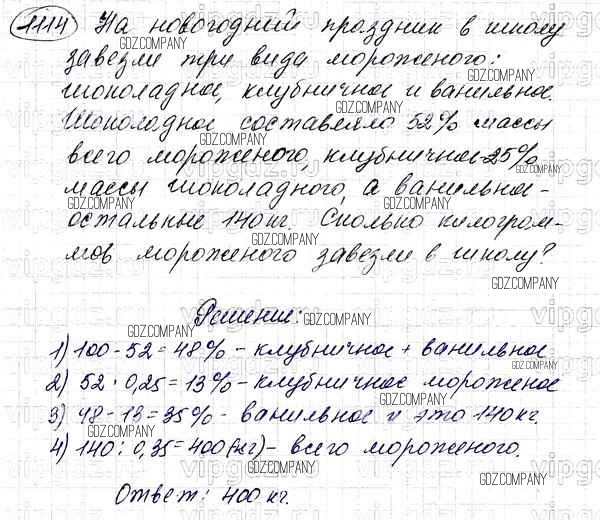 1114 На новогодний праздник в школу
завезли три вида мороженого:
шоколадное, клубничное и ванильное.
Шоколадное составляло 52% массы
всего мороженого, клубничное - 25%
массы шоколадного, а ванильное -
остальные 140 кг. Сколько килограм-
мов мороженого завезли в школу?
Решение:
1) 100 - 52 = 48% - клубничное + ванильное
2) 52 · 0,25 = 13% - клубничное мороженое
3) 48 - 13 = 35% - ванильное и это 140 кг.
4) 140 : 0,35 = 400 (кг) - всего мороженого.
Ответ: 400 кг.
GDZ.COMPANY
vipgdz.ru